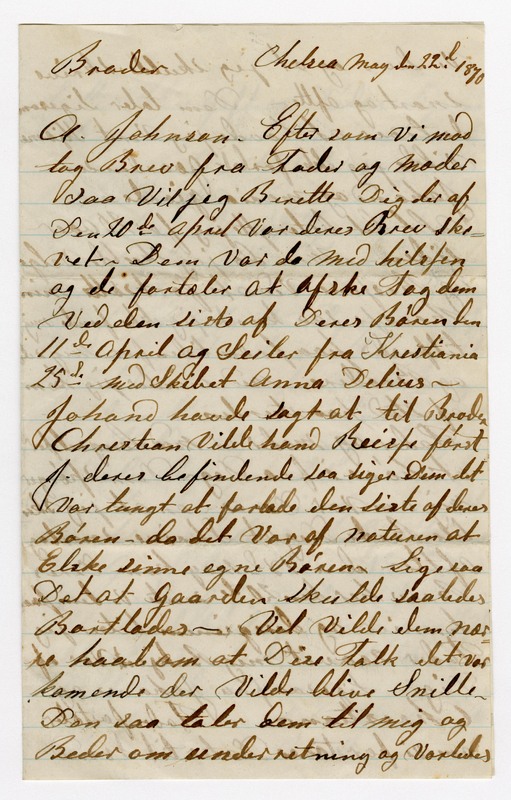 Broder Chelsea May den 22d 1870
A. Johnson. Efter som vi mod
tog Brev fra Fader og moder
saa Vil jeg Berette Dig der af
Den 20de April var deres Brev skre=
vet – Dem Var da Med hilsen
og de fortæler at Afske Tog dem
Ved den siste af Deres Børen den
11d April og Seiler fra Kristiania
25d med Skibet Anna Delius –
Johand havde sagt at til Broder
Christian Vilde hand Reisse først
f. deres befindende saa siger Dem det
Var tungt at forlade den siste af deres
Børen – da det Var af naturen at
Elske sinne egne Børen – Ligesaa
Det at Gaarden skulde saaledes
Bortlades – Vel Vilde dem nær=
re haab om at Disse Folk det var
komende der Vilde blive Snille –
Den saa taler dem til mig og
Beder om underretning og Vorledes